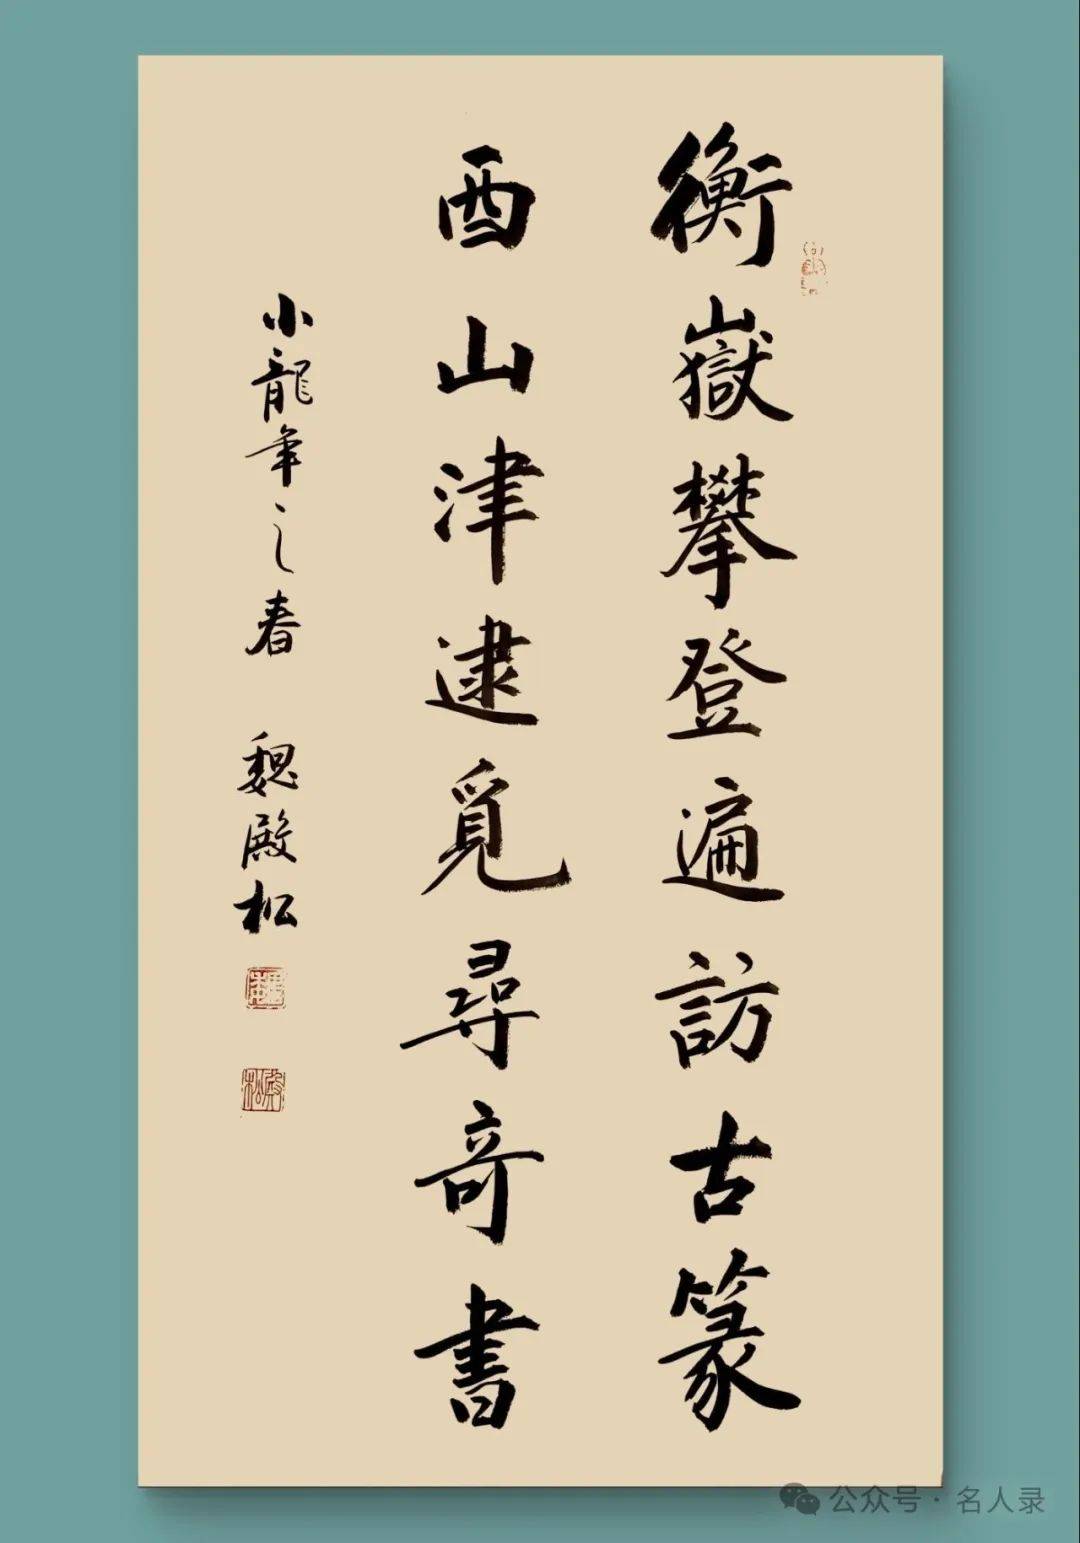 衡嶽攀登遍訪古篆
酉山津逮覓尋奇書
小龍年之春 魏殿松
公众号·名人录